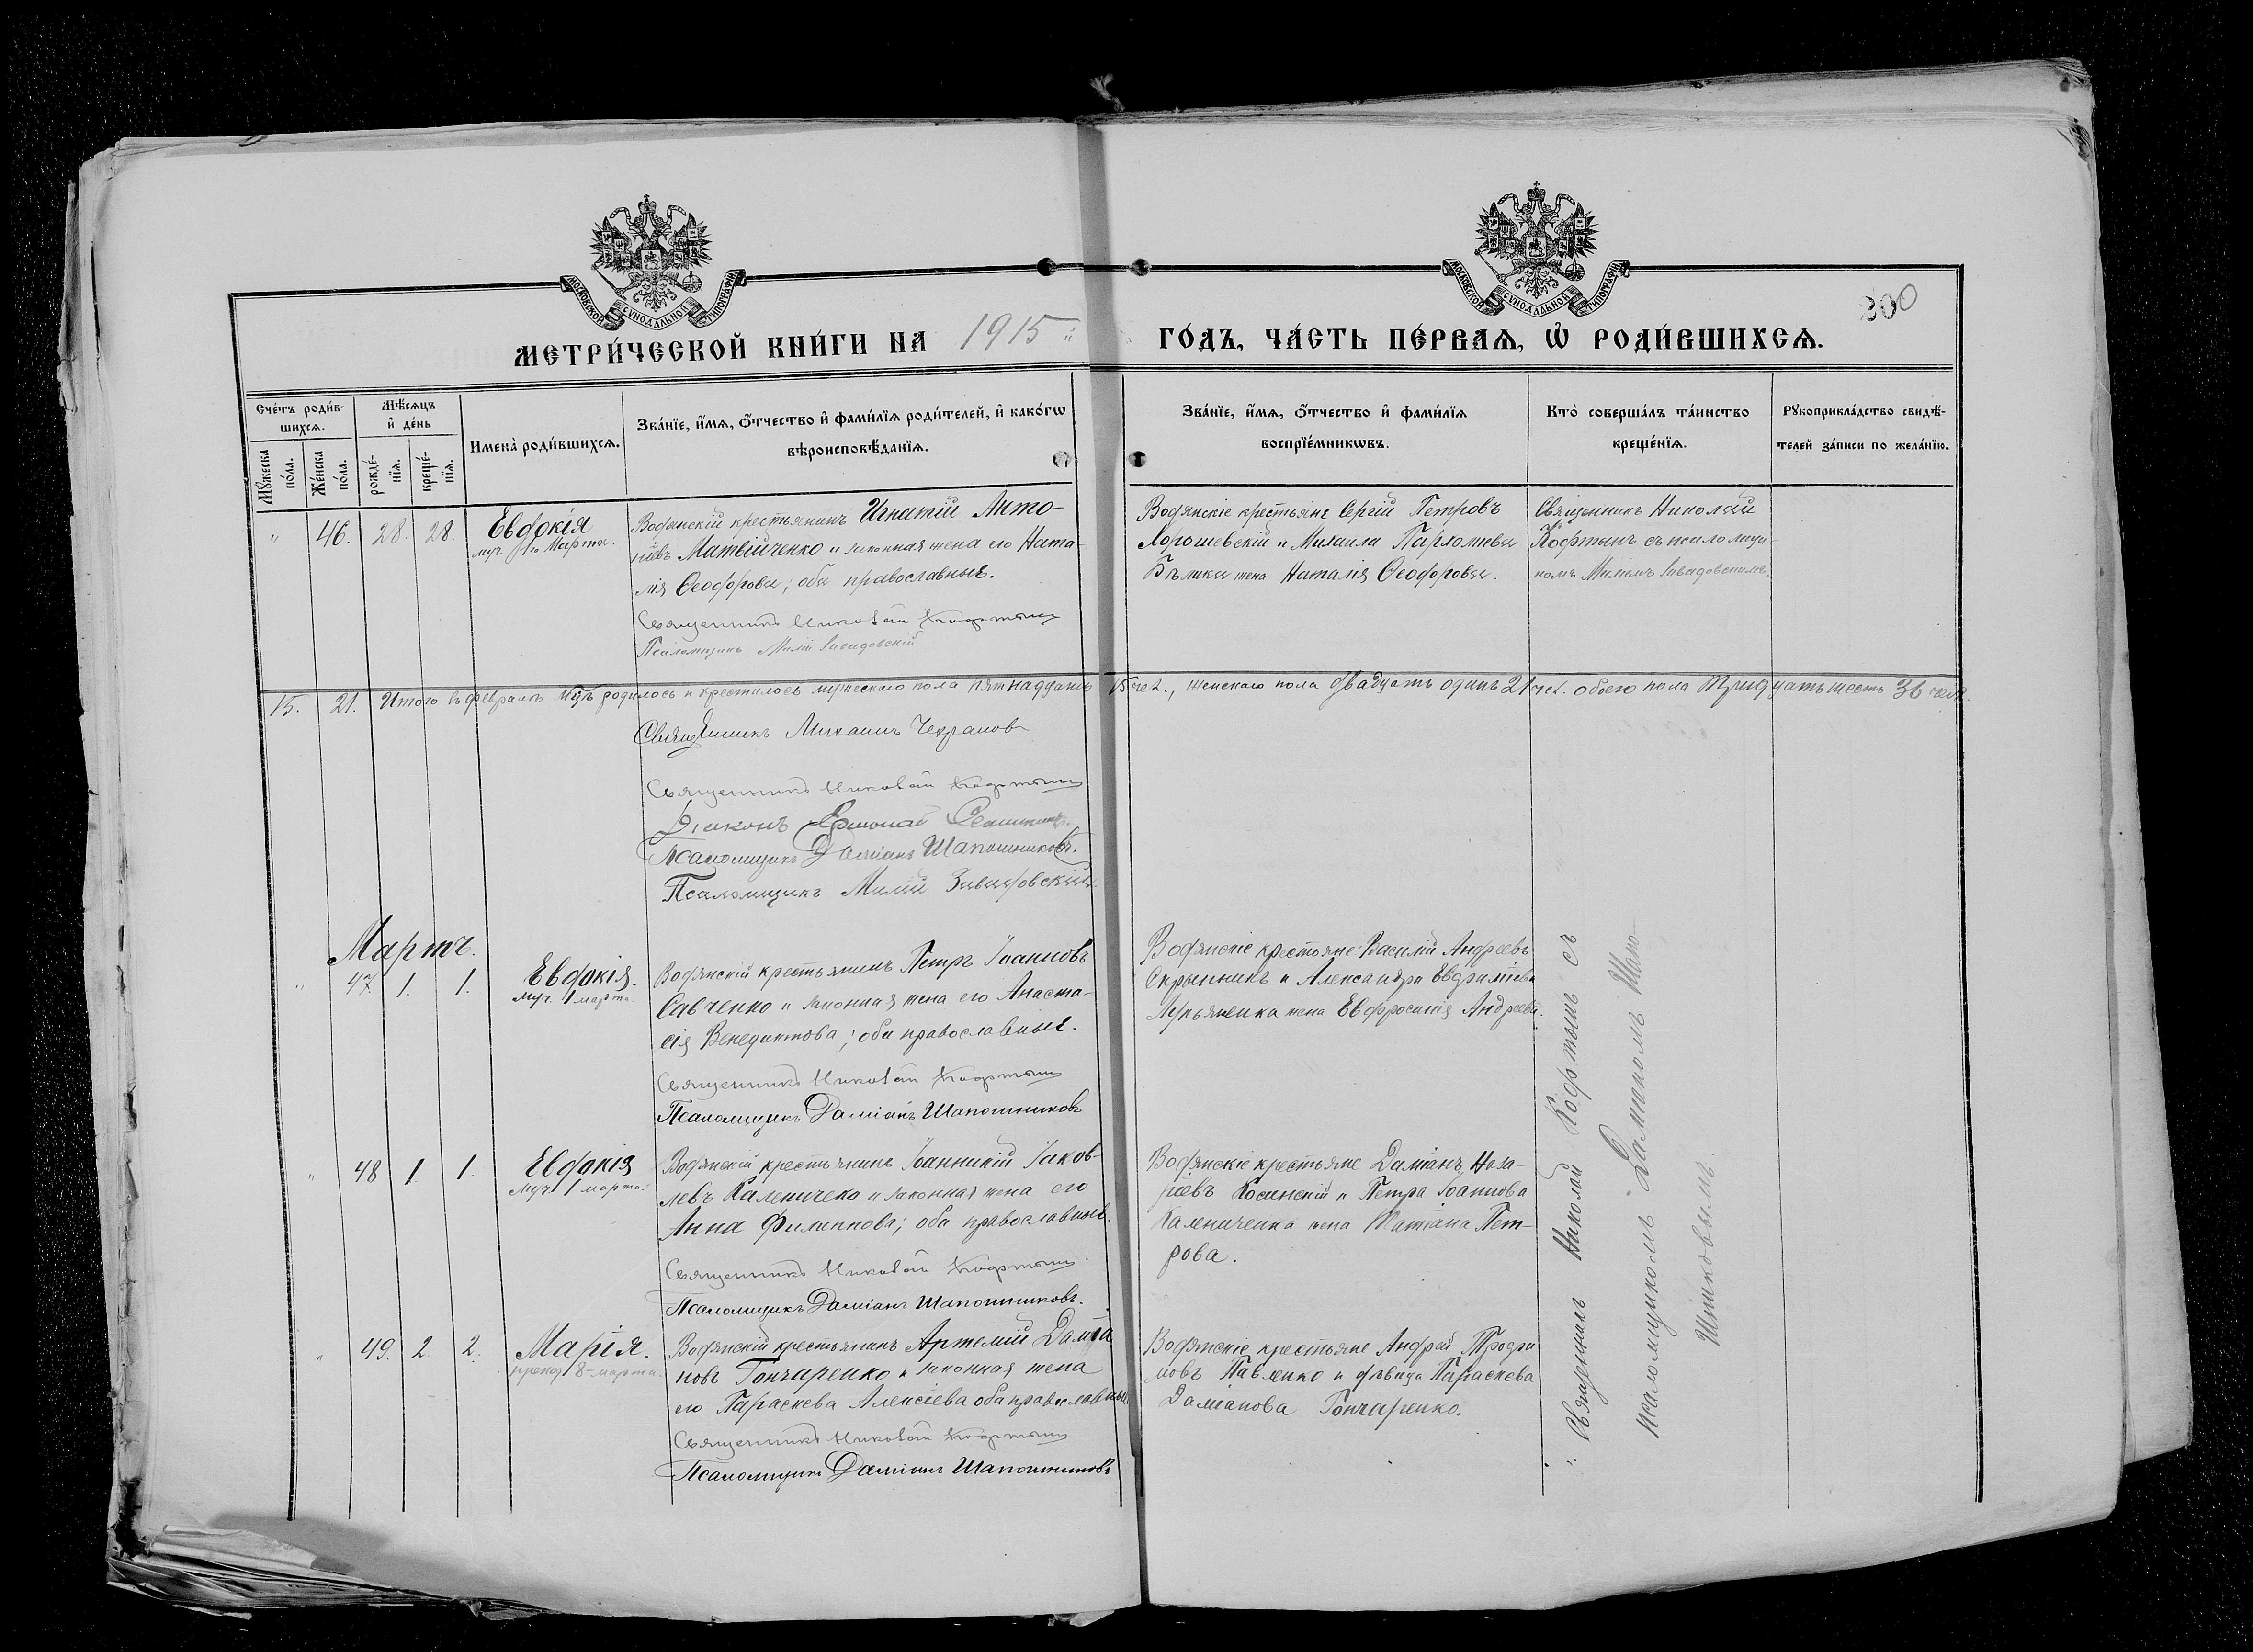 МОСКОВСКОЙ СУНОДАЛЬНОЙ ТИПОГРАФІИ
МОСКОВСКОЙ СУНОДАЛЬНОЙ ТИПОГРАФІИ
300
МЕТРИ́ЧЕСКОЙ КНИ́ГИ НА 1915
ГО́ДЪ, ЧА́СТЬ ПЕ́РВАЯ, Ѡ҆ РОДИ́ВШИХСЯ.
Сче́тъ роди́в-
шихся.
Мѣ́сяцъ
и҆ де́нь
Мꙋ́жеска по́ла.
Же́нска по́ла.
рожде́-нїя.
креще́-нїя.
Имена̀ роди́вшихся.
Зва́нїе, и҆́мя, ѻ҆́тчество и҆ фами́лїя роди́телей, и҆ како́гѡ
вѣроисповѣ́данїя.
Зва́нїе, и҆́мя, ѻ҆́тчество и҆ фами́лїя
воспрїе́мникѡвъ.
Кто̀ соверша́лъ та́инство
креще́нїя.
Рꙋкоприкла́дство свидѣ́-
телей за́писи по жела́нїю.
" 46. 28. 28. Евдокія
муч. 1го Марта.
Водянскій крестьянинъ Игнатій Анто-
ніевъ Матвійченко и законная жена его Ната-
лія Ѳеодорова; оба православные.
Священникъ Николай Кофтынъ
Псаломщикъ Милій Завадовскій
Водянскіе крестьяне Сергій Петровъ
Хорошевскій и Михаила Пархоміева
Бѣлика жена Наталія Ѳеодорова.
Священникъ Николай
Кофтынъ съ псаломщи-
комъ Миліемъ Завадовскимъ.
15. 21. Итого въ февралѣ м-цѣ родилось и крестилось мужескаго пола пятнадцать 15 чел., женскаго пола двадцать одинъ 21 чел. обоего пола тридцать шесть 36 чел.
Священникъ Михаилъ
Священникъ Николай Кофтынъ
Діаконъ
Псаломщикъ Даміанъ Шапошниковъ.
Псаломщикъ Милій Завадовскій.
Мартъ.
" 47. 1. 1. Евдокія.
муч. 1 марта.
Водянскій крестьянинъ Петръ Іоанновъ
Савченко и законная жена его Анаста-
сія Венедиктова; оба православные.
Священникъ Николай Кофтынъ
Псаломщикъ Даміанъ Шапошниковъ
Водянскіе крестьяне: Василій Андреевъ
Скрыпникъ и Александра
Лукьяненка жена Евфросинія Андреева.
" 48 1 1. Евдокія
муч. 1 марта.
Водянскій крестьянинъ Іоанникій Іаков-
левъ Каленичеко и законная жена его
Анна Филиппова; оба православные.
Священникъ Николай Кофтынъ
Псаломщикъ Даміанъ Шапошниковъ.
Водянскіе крестьяне Даміанъ Наза-
ріевъ Косинскій и Петра Іоаннова
Калениченка жена Татіана Пет-
рова.
" 49. 2. 2. Марія.
препод. 8-марта.
Водянскій крестьянинъ Артемій Даміа
новъ Гончаренко и законная жена
его Параскева Алексіева оба православные
Священникъ Николай Кофтынъ
Псаломщикъ Даміанъ Шапошниковъ
Водянскіе крестьяне Андрей Трофи
мовъ Павленко и дѣвица Параскева
Даміанова Гончаренко.
Священникъ Николай Кофтынъ съ
псаломщикомъ Даміаномъ Шапо-
шниковымъ